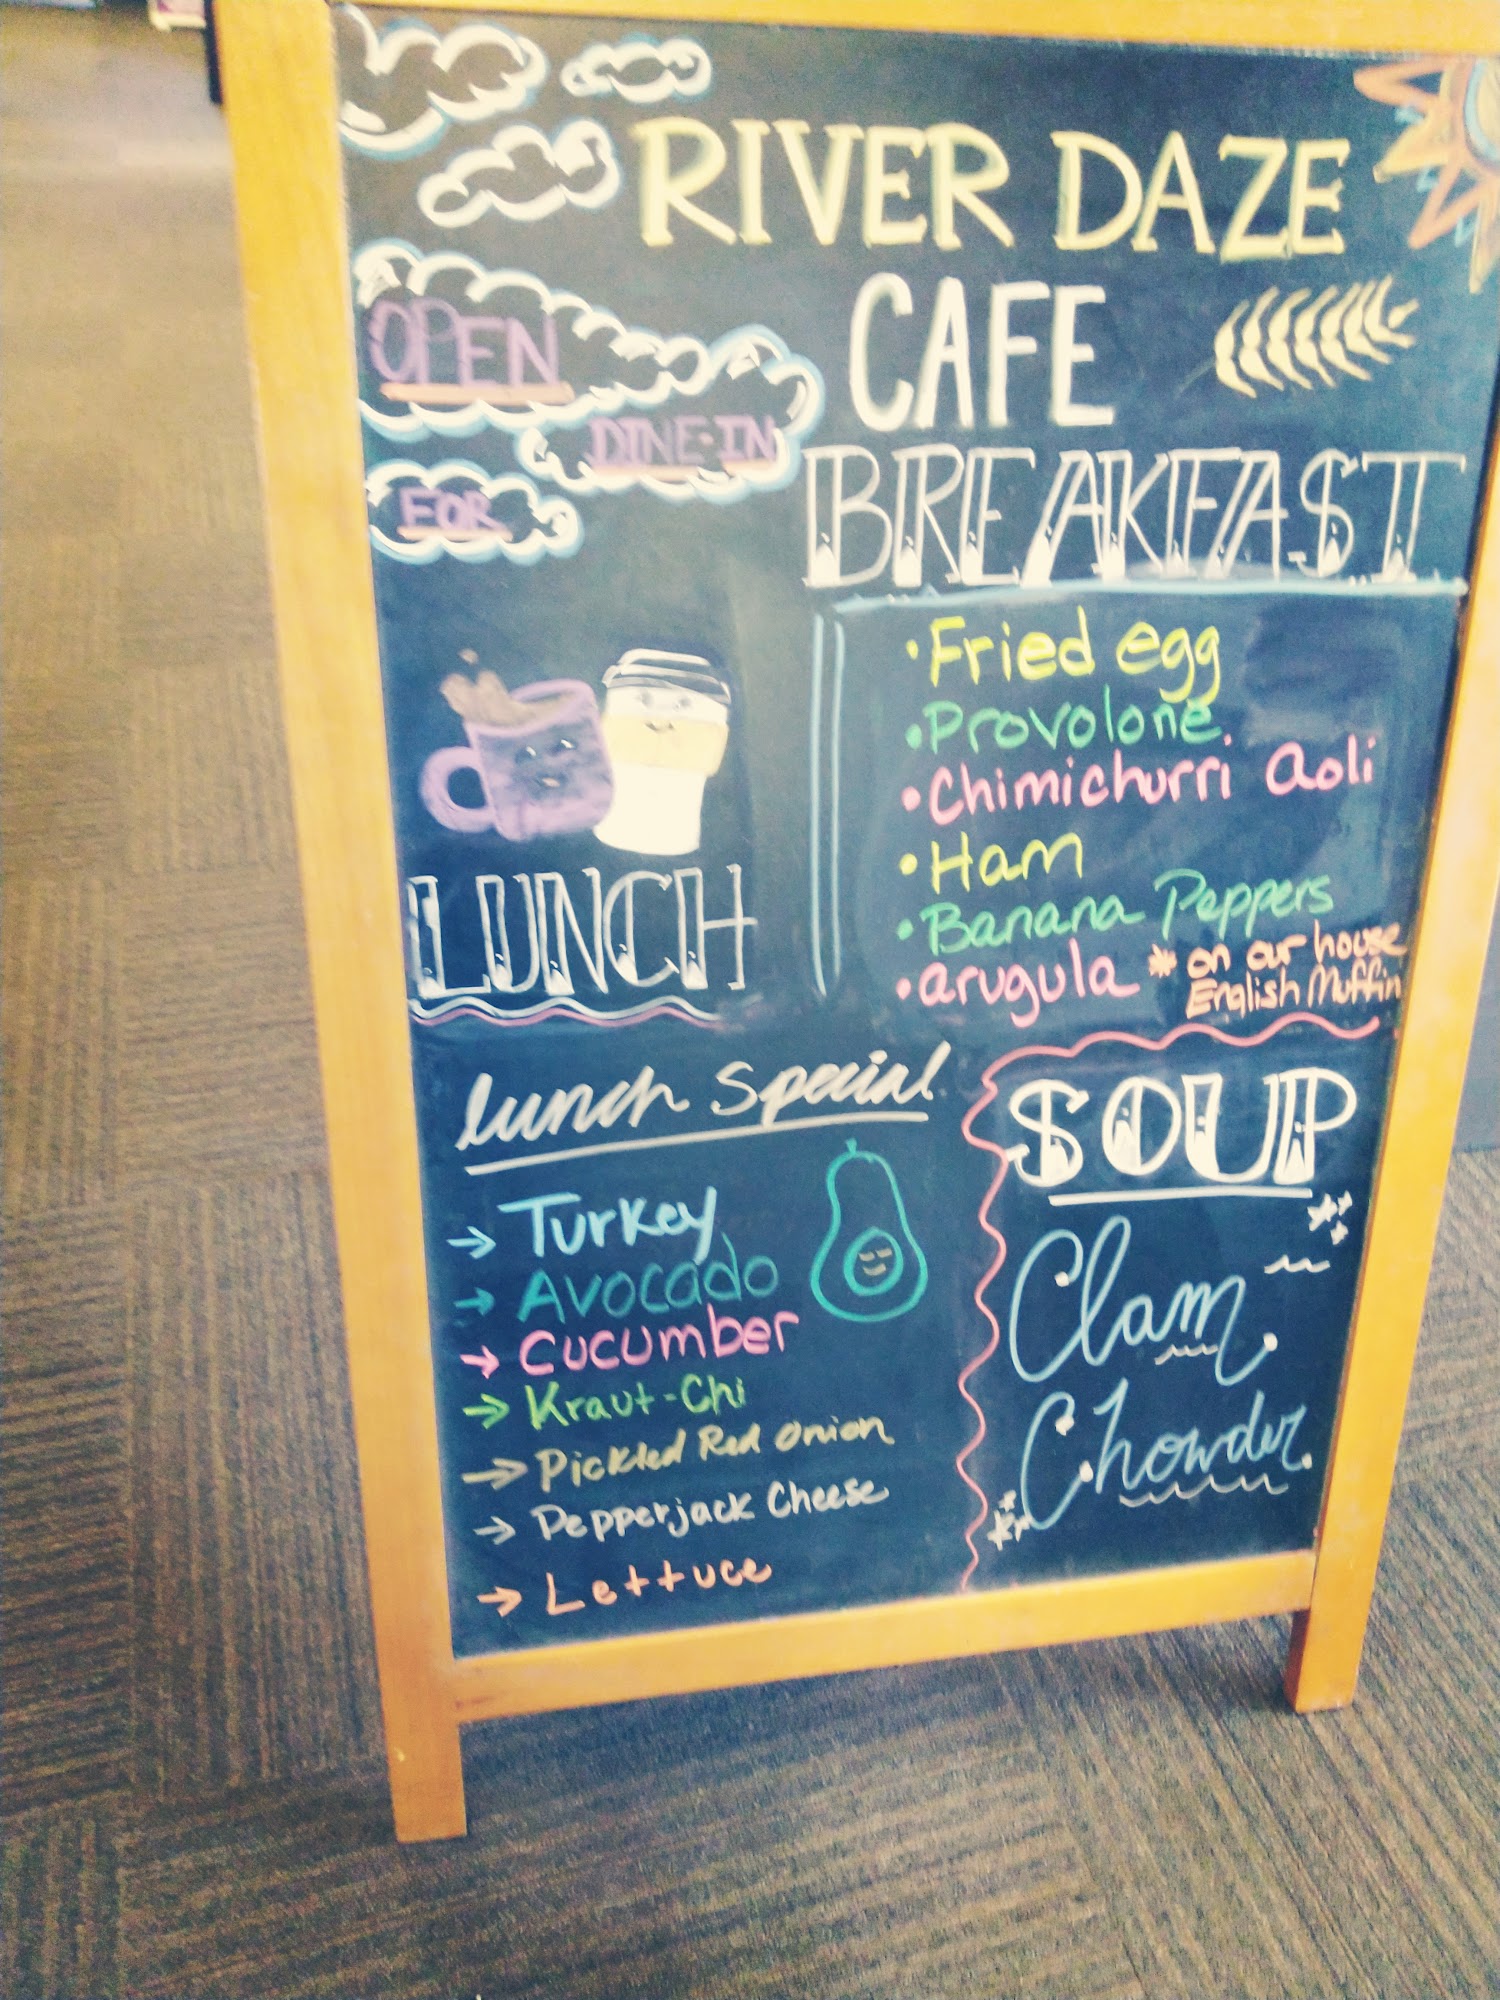 RIVER DAZE
CAFE
OPEN
DINE-IN
FOR
BREAKFAST
• Fried egg
• Provolone
• Chimichurri aoli
• Ham
• Banana Peppers
• arugula * on our house
English Muffin
LUNCH
lunch special
→ Turkey
→ Avocado
→ Cucumber
→ Kraut-Chi
→ Pickled Red onion
→ Pepperjack Cheese
→ Lettuce
SOUP
Clam
Chowder